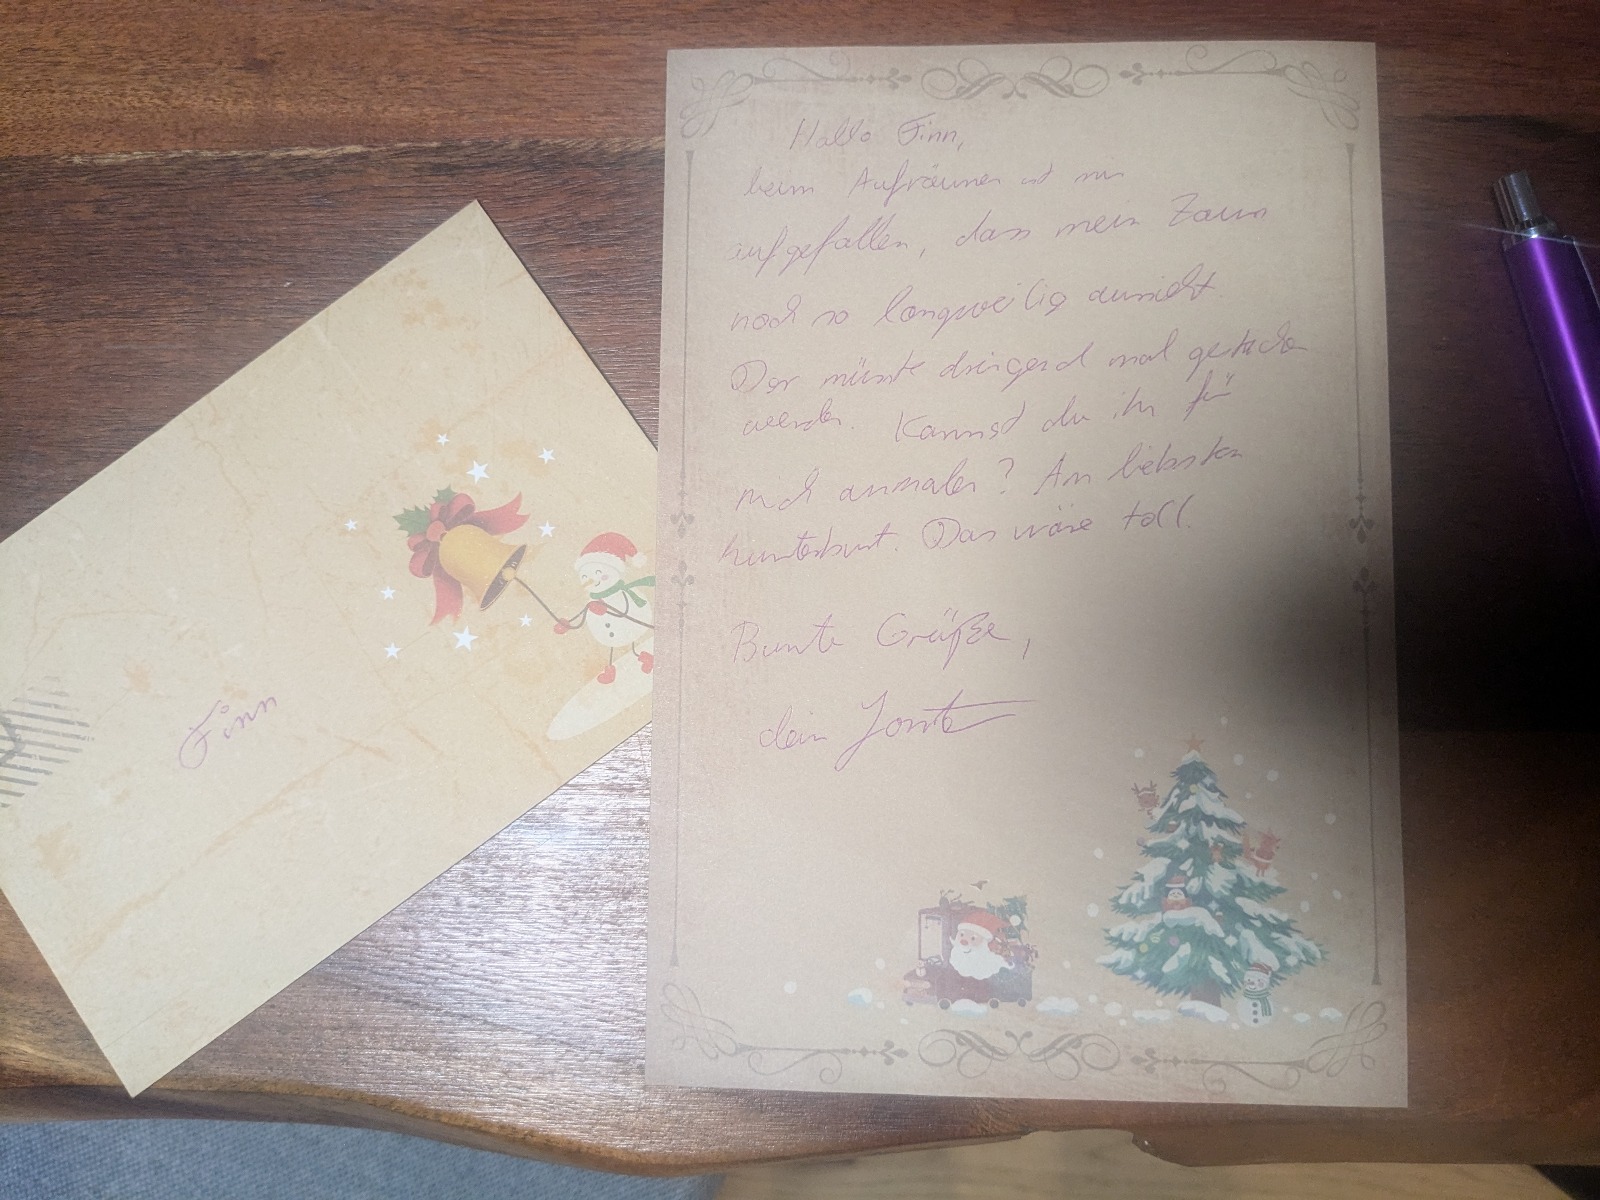 Finn
Hallo Finn,
beim Aufräumen ist mir
aufgefallen, dass mein Zaun
noch so langweilig aussieht.
Der müsste dringend mal gestrichen
werden. Kannst du ihn für
mich anmalen? Am liebsten
kunterbunt. Das wäre toll.
Bunte Grüße,
dein Jonte